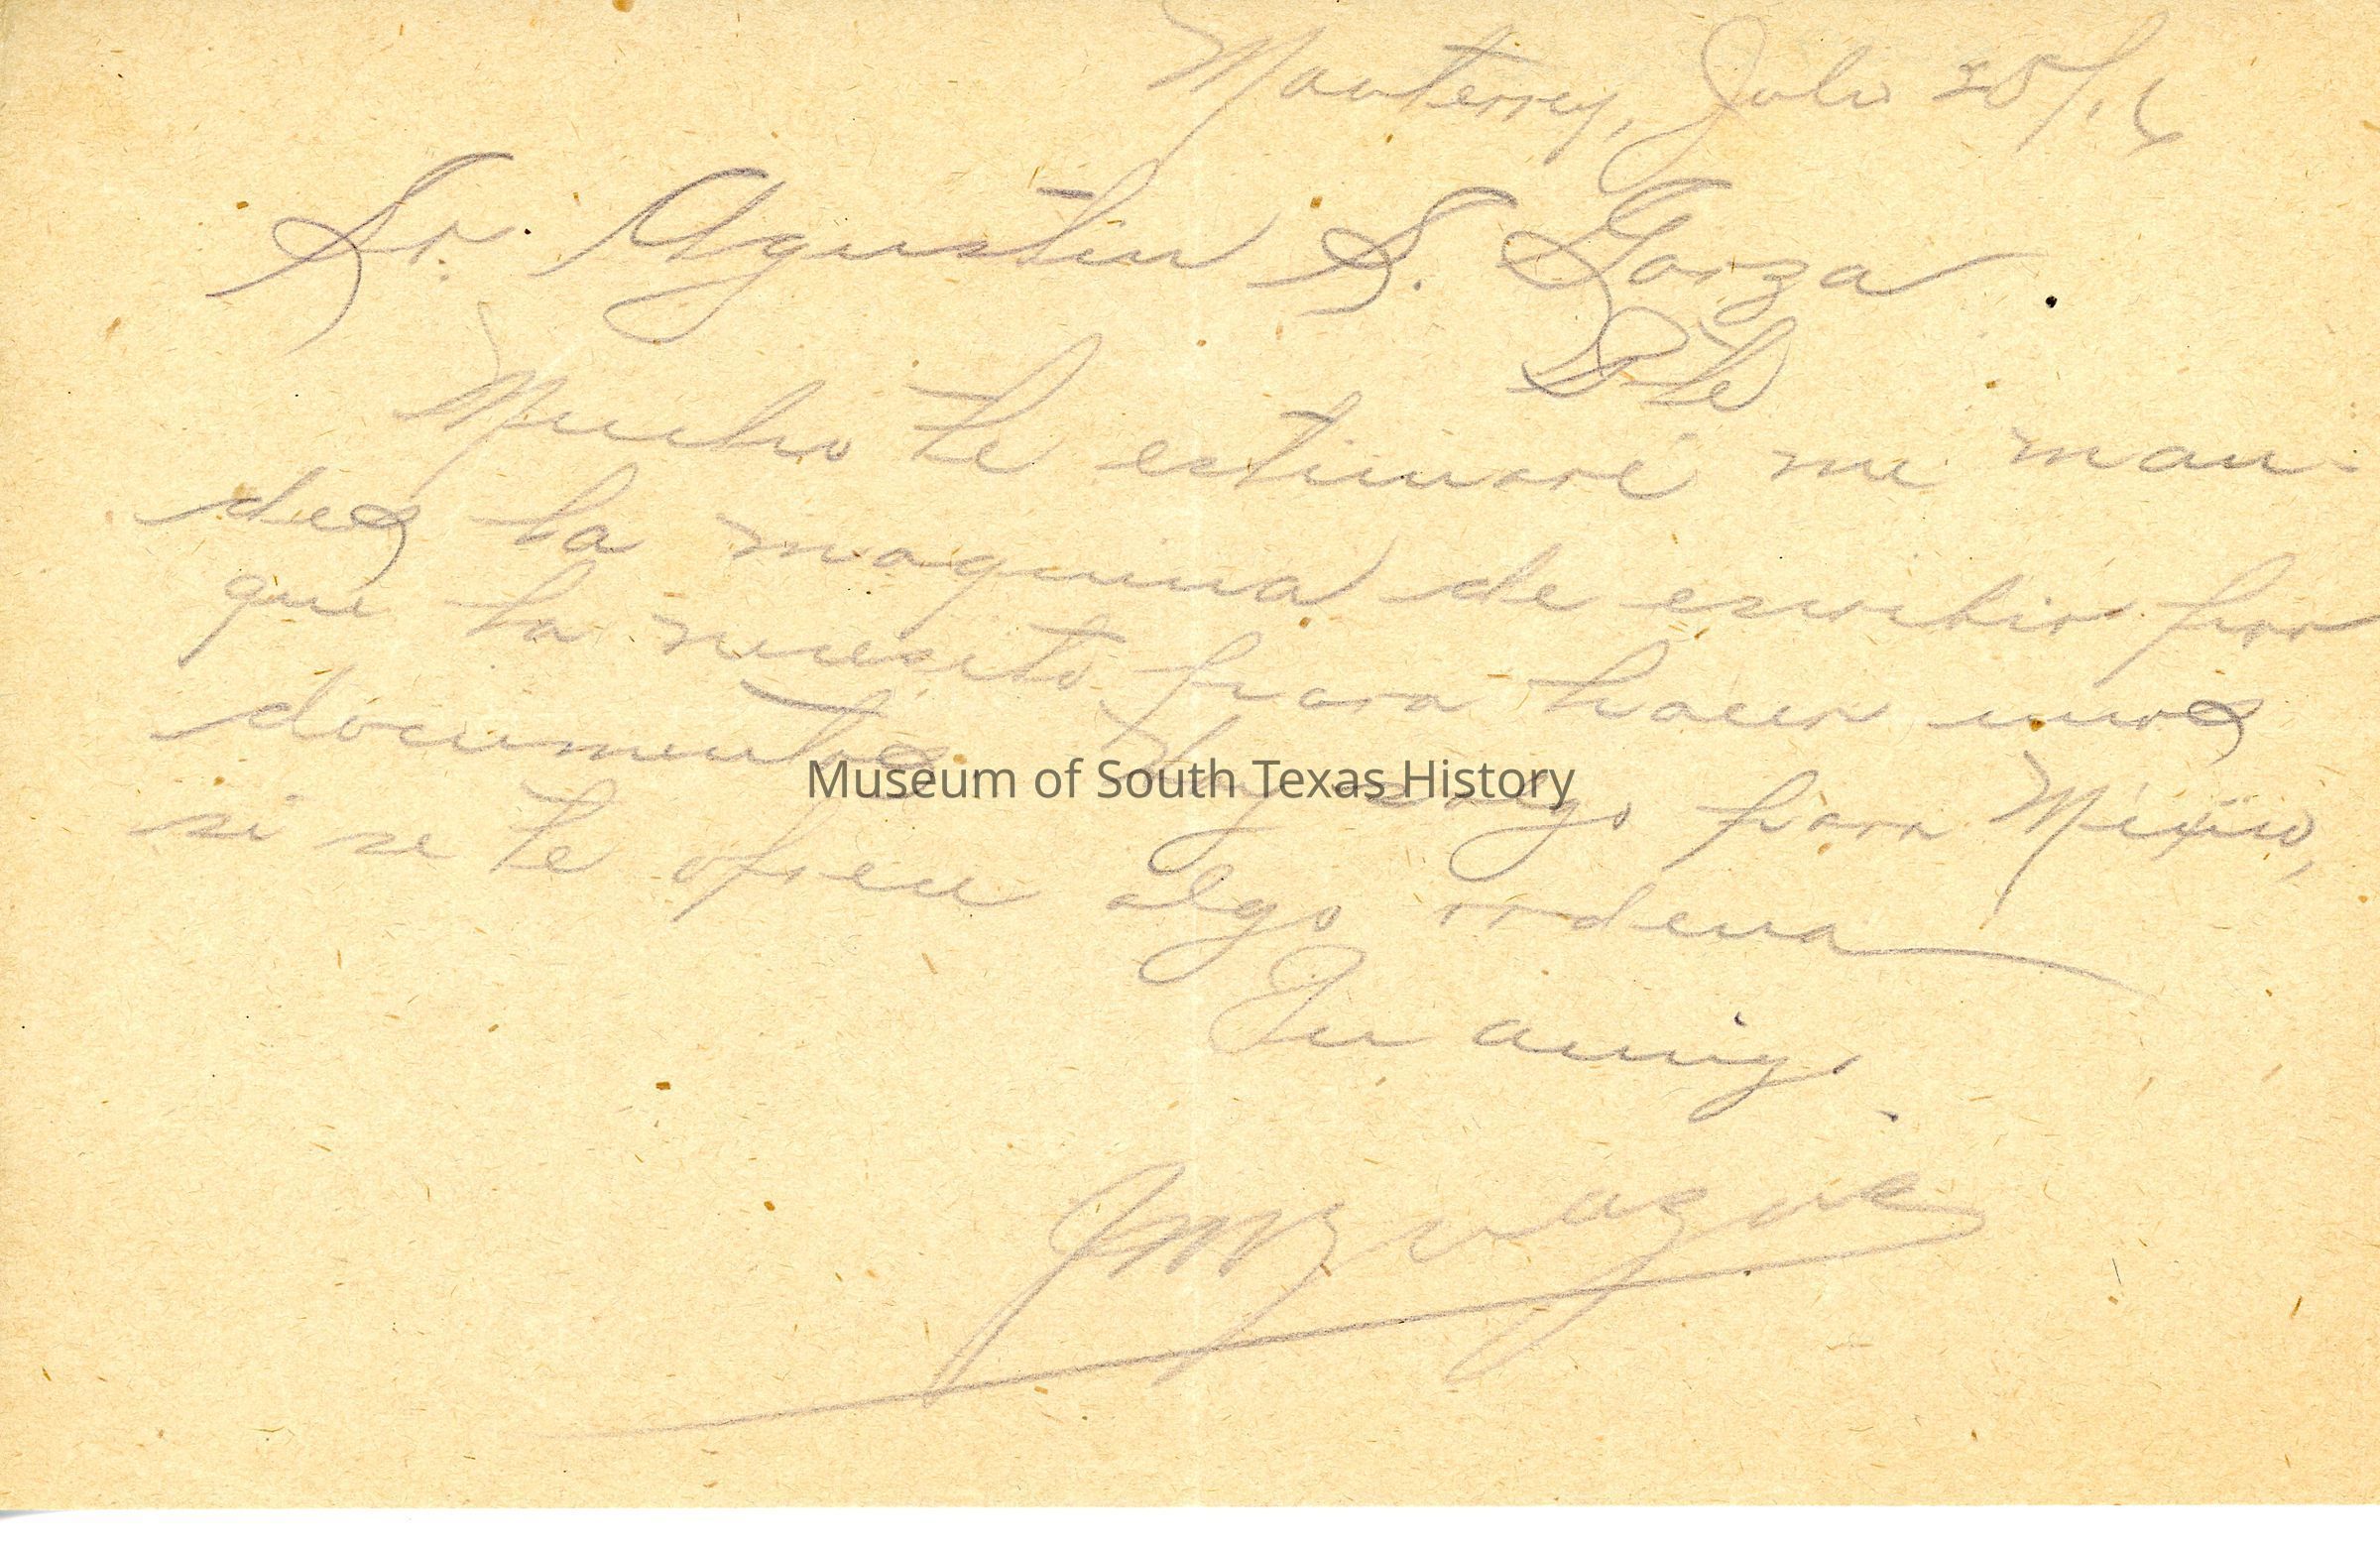 Monterrey, Julio 25/16
Sr. Agustin S. Garza.
Pte
Mucho te estimaré me man-
des la maquina de escribir por
que la necesito para hacer unos
documentos. Hoy salgo para México,
si se te ofrece algo ordena
Tu amigo.
Museum of South Texas History